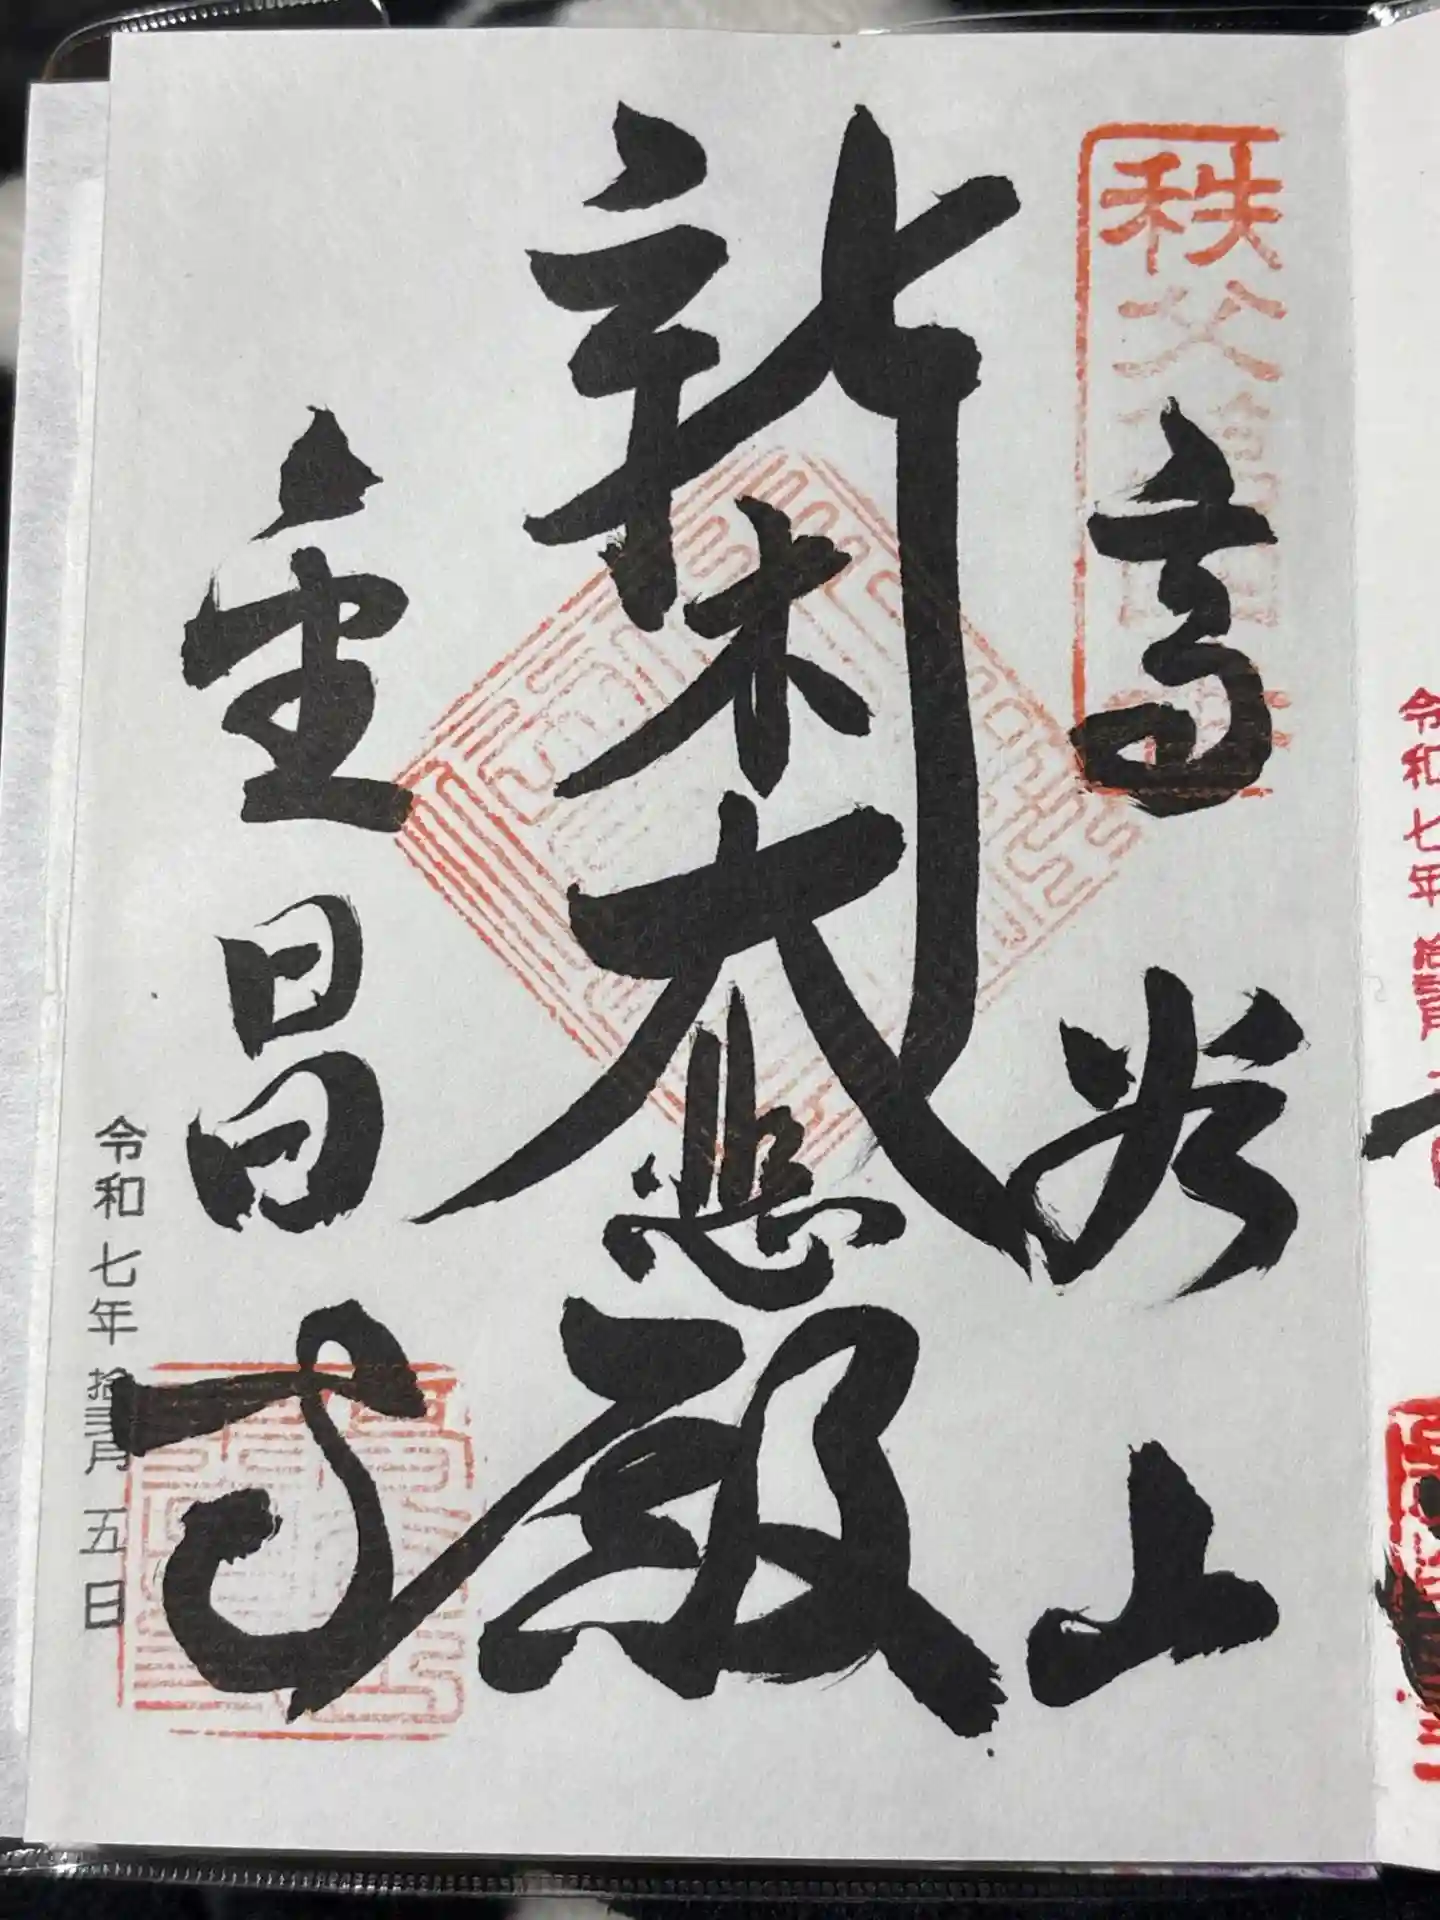 秩父
高谷山
新木大悲殿
金昌寺
令和七年拾弐月五日
令和七年